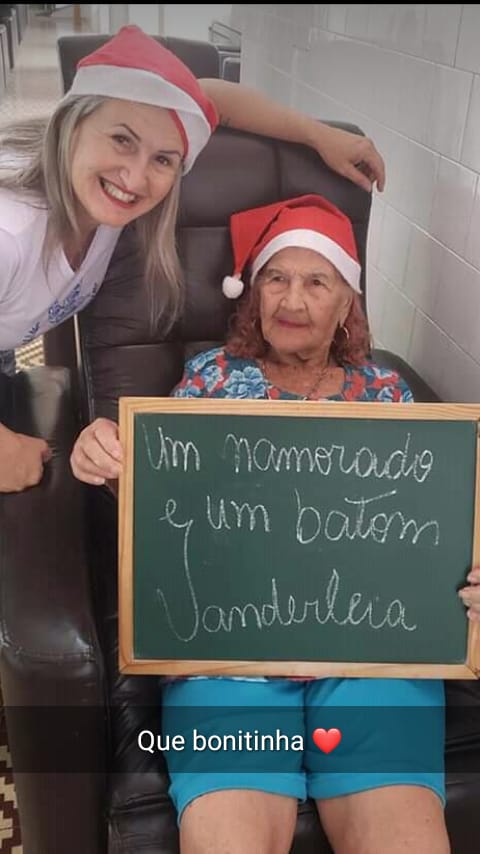 Um namorado
e um batom
Vanderleia
Que bonitinha ❤️